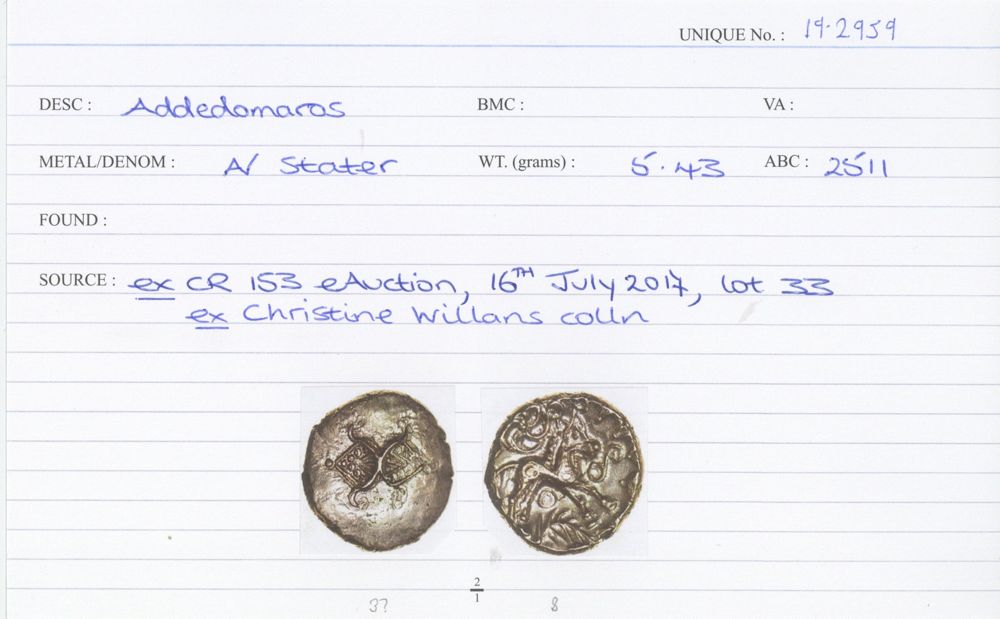 UNIQUE No. : 19.2959
DESC : Addedomaros BMC : VA :
METAL/DENOM : A/ Stater WT. (grams) : 5.43 ABC : 2511
FOUND :
SOURCE : ex CR 153 eAuction, 16TH July 2017, lot 33
ex Christine Willans colln
2
1
3? 8